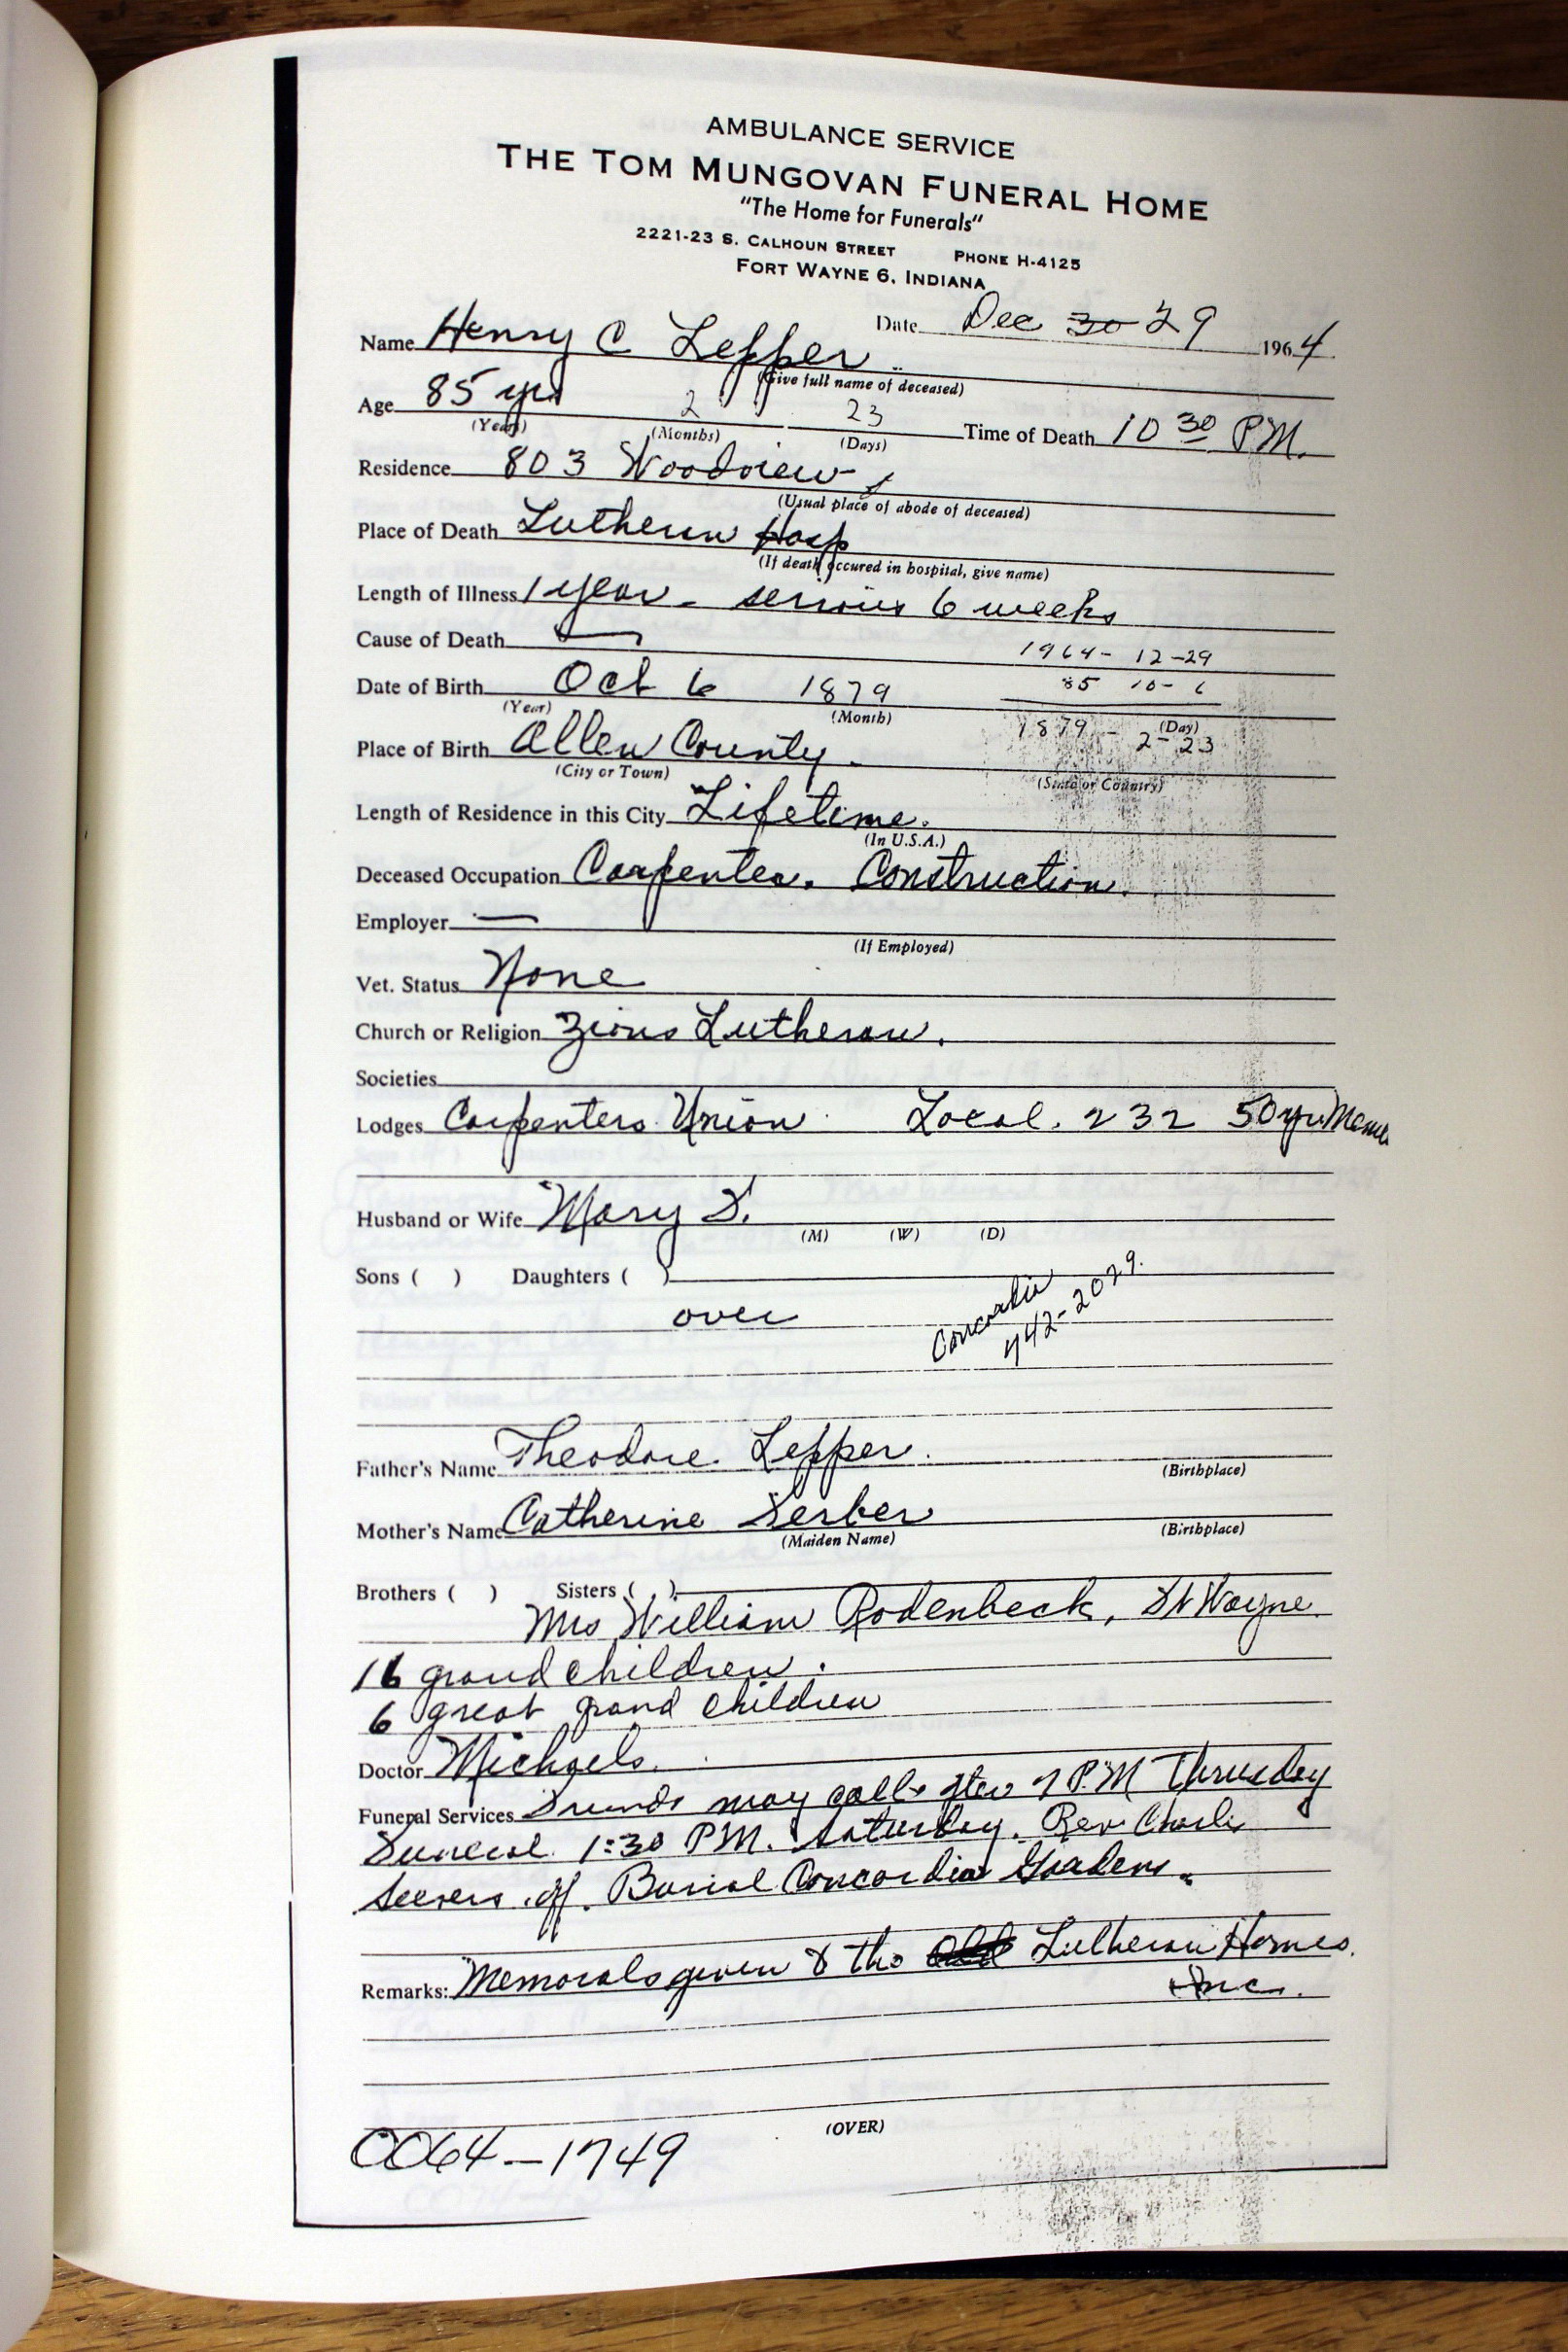 AMBULANCE SERVICE
THE TOM MUNGOVAN FUNERAL HOME
"The Home for Funerals"
2221-23 S. CALHOUN STREET PHONE H-4125
FORT WAYNE 6, INDIANA
Date Dec 30 29 1964
Name Henry C Lepper
(Give full name of deceased)
Age 85 yrs 2 23 Time of Death 10 30 P.M.
(Years) (Months) (Days)
Residence 803 Woodview
(Usual place of abode of deceased)
Place of Death Lutheran Hosp
(If death occured in hospital, give name)
Length of Illness 1 year - serious 6 weeks
Cause of Death —
1964- 12-29
Date of Birth Oct 6 1879 85 10-6
(Year) (Month) (Day)
1879 - 2-23
Place of Birth Allen County
(City or Town) (State or Country)
Length of Residence in this City Lifetime.
(In U.S.A.)
Deceased Occupation Carpenter. Construction.
Employer —
(If Employed)
Vet. Status None
Church or Religion Zions Lutheran.
Societies
Lodges Carpenters Union Local. 232 50 yr. Mem
Husband or Wife Mary
(M) (W) (D)
Sons ( ) Daughters ( )
over
Concordia
742-2029.
Father's Name Theodore Lepper.
(Birthplace)
Mother's Name Catherine
(Maiden Name) (Birthplace)
Brothers ( ) Sisters ( )
Mrs William Rodenbeck, Ft Wayne.
16 grand children.
6 great grand children
Doctor Michaels.
Funeral Services Friends may call after 7 P.M Thrusday
Funeral 1:30 P.M. Saturday. Rev Charles
Seevers off. Burial Concordia Gardens.
Remarks: Memorals given to the Old Lutheran Homes.
Inc.
(OVER)
CC64-1749